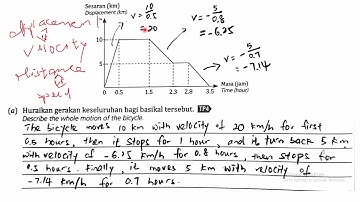 Sesaran (km)
Displacement (km)
v = 10/0.5
= 20
v = -5/0.8
= -6.25
v = -5/0.7
= -7.14
displacement
velocity
distance
speed
10
5
0 0.5 1.5 2.3 2.8 3.5
Masa (jam)
Time (hour)
(a) Huraikan gerakan keseluruhan bagi basikal tersebut. TP4
Describe the whole motion of the bicycle.
The bicycle moves 10 km with velocity of 20 km/h for first
0.5 hours, then it stops for 1 hour, and it turn back 5 km
with velocity of -6.25 km/h for 0.8 hours, then stops for
0.5 hours. Finally, it moves 5 km with velocity of
-7.14 km/h for 0.7 hours.